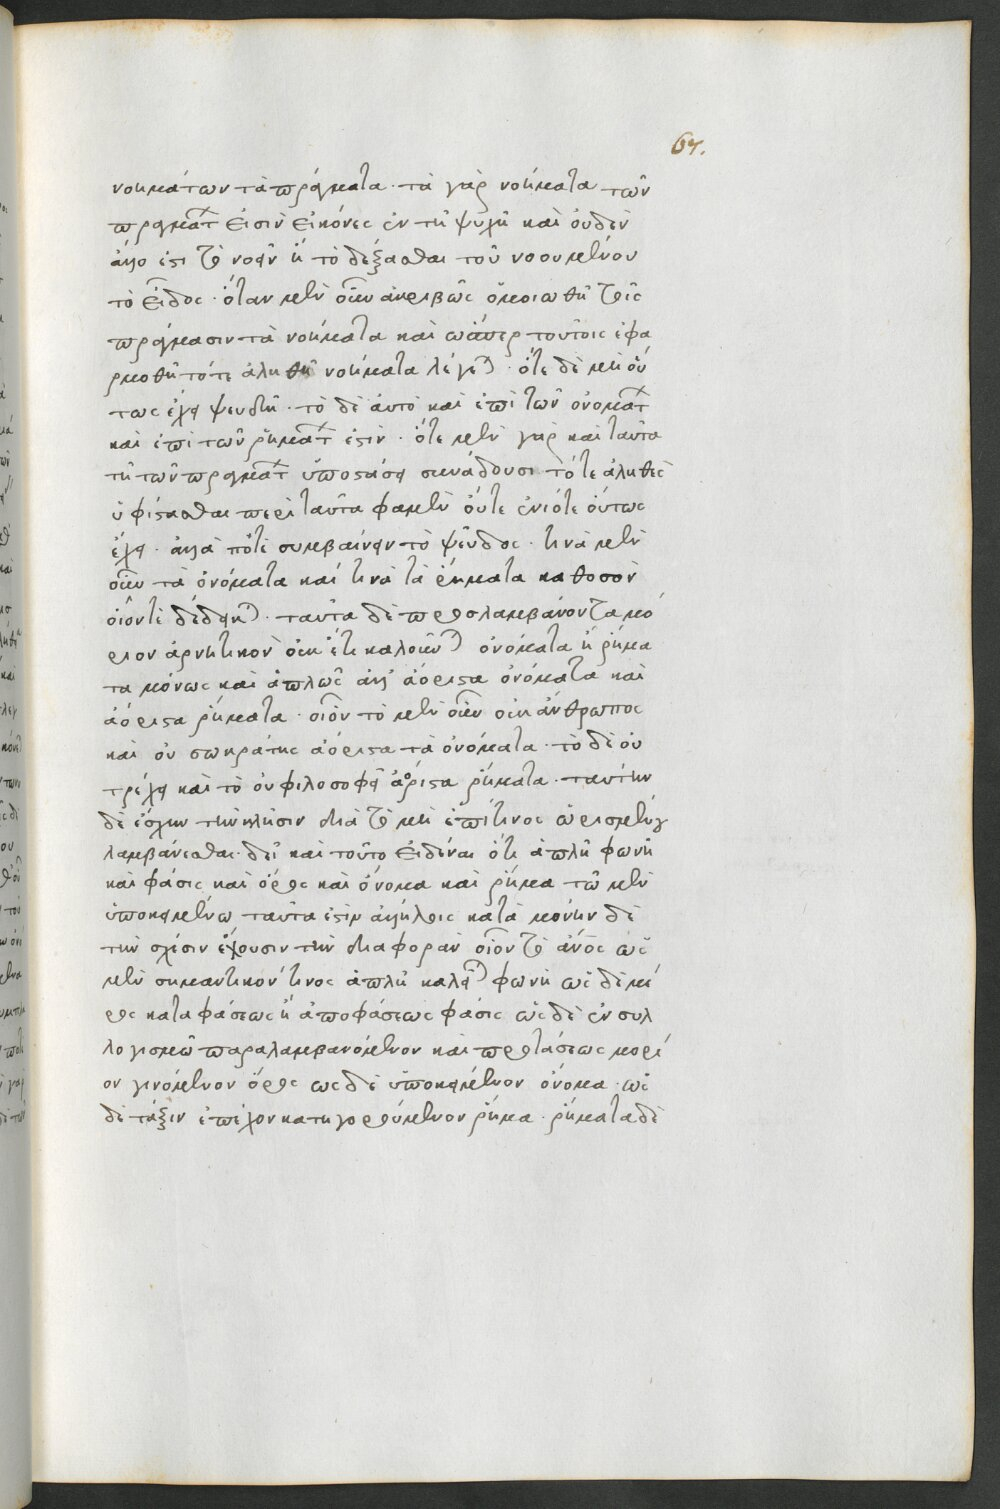 67.
νοημάτων τὰ πράγματα· τὰ γὰρ νοήματα τῶν
πραγμάτ εἰσὶν εἰκόνες ἐν τῇ ψυχῇ καὶ οὐδὲν
ἄλλο ἐστὶ τὸ νοεῖν ἢ τὸ δέξασθαι τοῦ νοουμένου
τὸ εἶδος· ὅταν μὲν οὖν ἀκριβῶς ὁμοιωθῇ τοῖς
πράγμασιν τὰ νοήματα καὶ ὥσπερ τούτοις ἐφα
ρμοθῇ τότε ἀληθῆ νοήματα λέγε· ὅτε δὲ μὴ οὕ
τως ἔχει ψευδῆ· τὸ δὲ αὐτὸ καὶ ἐπὶ τῶν ὀνομάτ
καὶ ἐπὶ τῶν ῥημάτ ἐστὶν· ὅτε μὲν γὰρ καὶ ταῦτα
τῇ τῶν πραγμάτ ὑποστάσει συνάδουσι τότε ἀληθὲς
ὑφίστασθαι περὶ ταῦτα φαμὲν οὔτε ἐνίοτε οὕτως
ἔχει· ἀλλὰ ποτὲ συμβαίνειν τὸ ψεῦδος· τινὰ μὲν
οὖν τὰ ὀνόματα καί τινα τὰ ῥήματα καθοσον
οἷόν τε δέδεικ· ταῦτα δὲ προσλαμβάνοντα μό
ριον ἀρνητικὸν οὐκ ἔτι καλοῦν ὀνόματα ἢ ῥήμα
τα μόνως καὶ ἁπλῶς ἀλλ' ἀόριστα ὀνόματα καὶ
ἀόριστα ῥήματα· οἷον τὸ μὲν οὖν οὐκ ἄνθρωπος
καὶ οὐ σωκράτης ἀόριστα τὰ ὀνόματα· τὸ δὲ οὐ
τρέχει καὶ τὸ οὐ φιλοσοφεῖ ἀόριστα ῥήματα· ταύτην
δὲ ἔσχην τὴν κλῆσιν διὰ τὸ μὴ ἐπί τινος ὡρισμένου
λαμβάνεσθαι· δεῖ καὶ τοῦτο εἰδέναι ὅτι ἁπλῆ φωνὴ
καὶ φάσις καὶ ὅρος καὶ ὄνομα καὶ ῥῆμα τῷ μὲν
ὑποκειμένῳ ταῦτα ἐστὶν ἀλλήλοις κατὰ μόνην δὲ
τὴν σχέσιν ἔχουσιν τὴν διαφορὰν οἷον τὸ ἄνος ὡς
μὲν σημαντικόν τινος ἁπλῆ καλεῖ φωνὴ ὡς δὲ μέ
ρος καταφάσεως ἢ ἀποφάσεως φάσις ὡς δὲ ἐν συλ
λογισμῷ παραλαμβανόμενον καὶ προτάσεως μορί
ον γινόμενον ὅρος ὡς δὲ ὑποκείμενον ὄνομα· ὡς
δὲ τάξιν ἐπέχον κατηγορούμενον ῥῆμα· ῥήματα δὲ